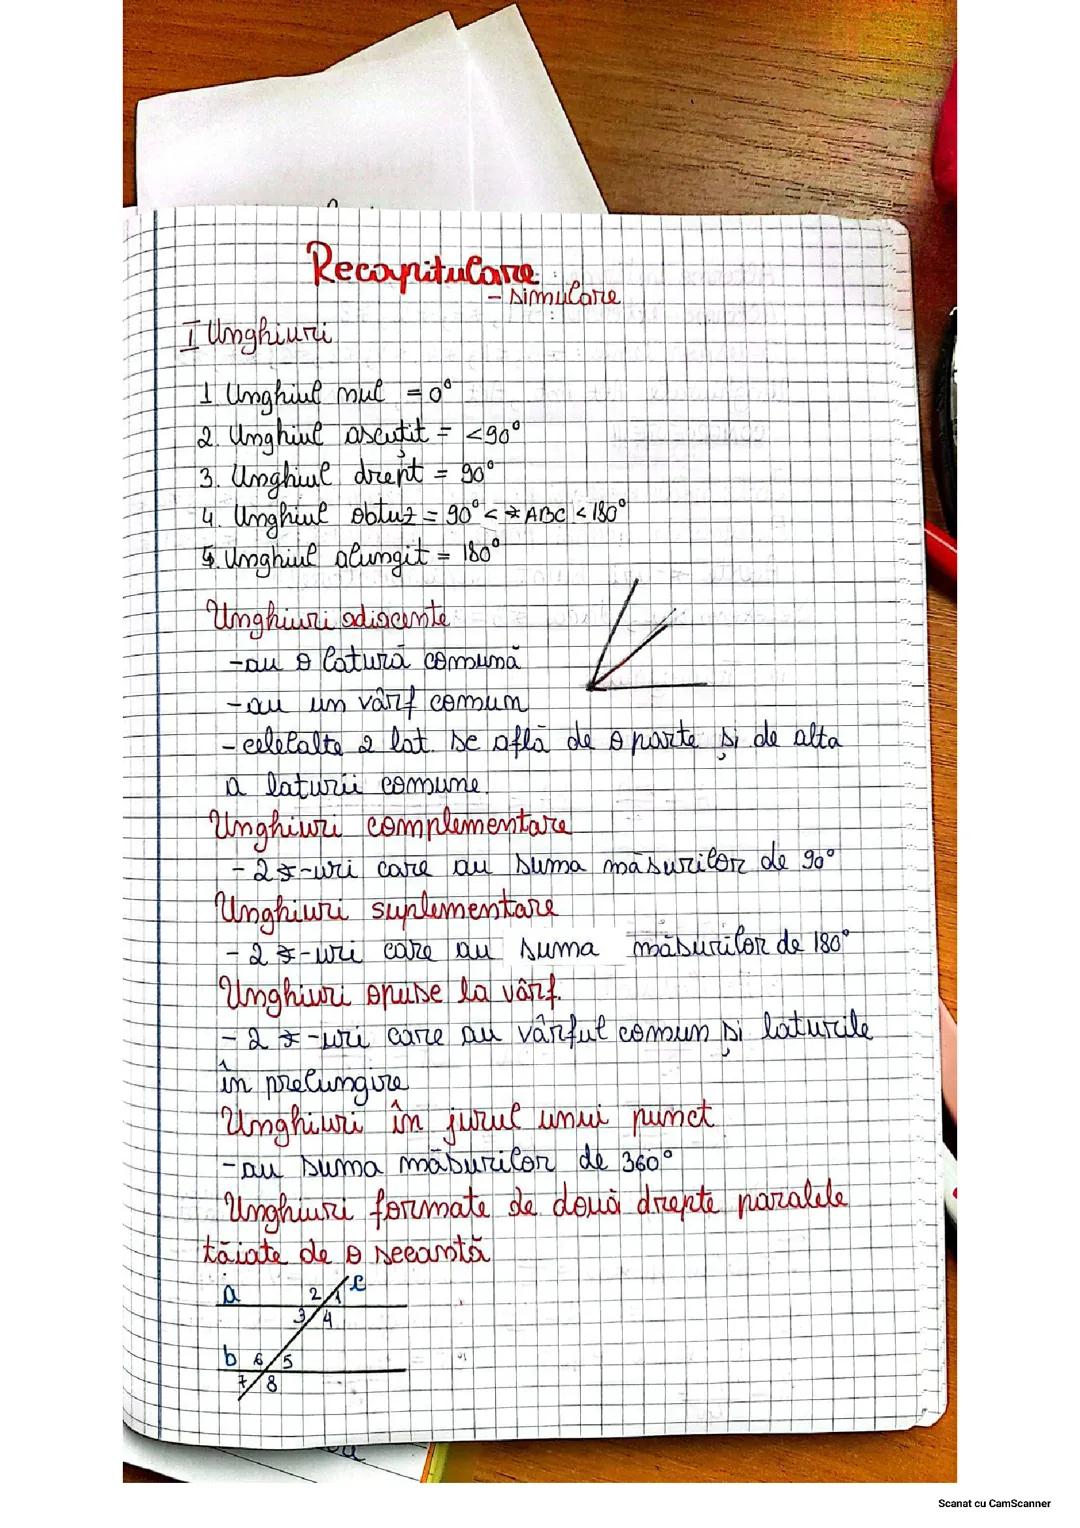 Recapitulare
- simulare
I Unghiuri
1 Unghiul nul = 0°
2. Unghiul ascuțit = <90°
3. Unghiul drept = 90°
4. Unghiul obtuz = 90° < ∢ ABC < 180°
5. Unghiul alungit = 180°
Unghiuri adiacente
-au o latură comună
-au un vârf comun
-celelalte 2 lat. se află de o parte și de alta
a laturii comune.
Unghiuri complementare
- 2 ∢-uri care au suma măsurilor de 90°
Unghiuri suplementare
- 2 ∢-uri care au suma măsurilor de 180°
Unghiuri opuse la vârf.
- 2 ∢-uri care au vârful comun și laturile
în prelungire
Unghiuri în jurul unui punct
-au suma măsurilor de 360°
Unghiuri formate de două drepte paralele
tăiate de o secantă
a 2 1 c
3 4
b 6 5
7 8
Scanat cu CamScanner